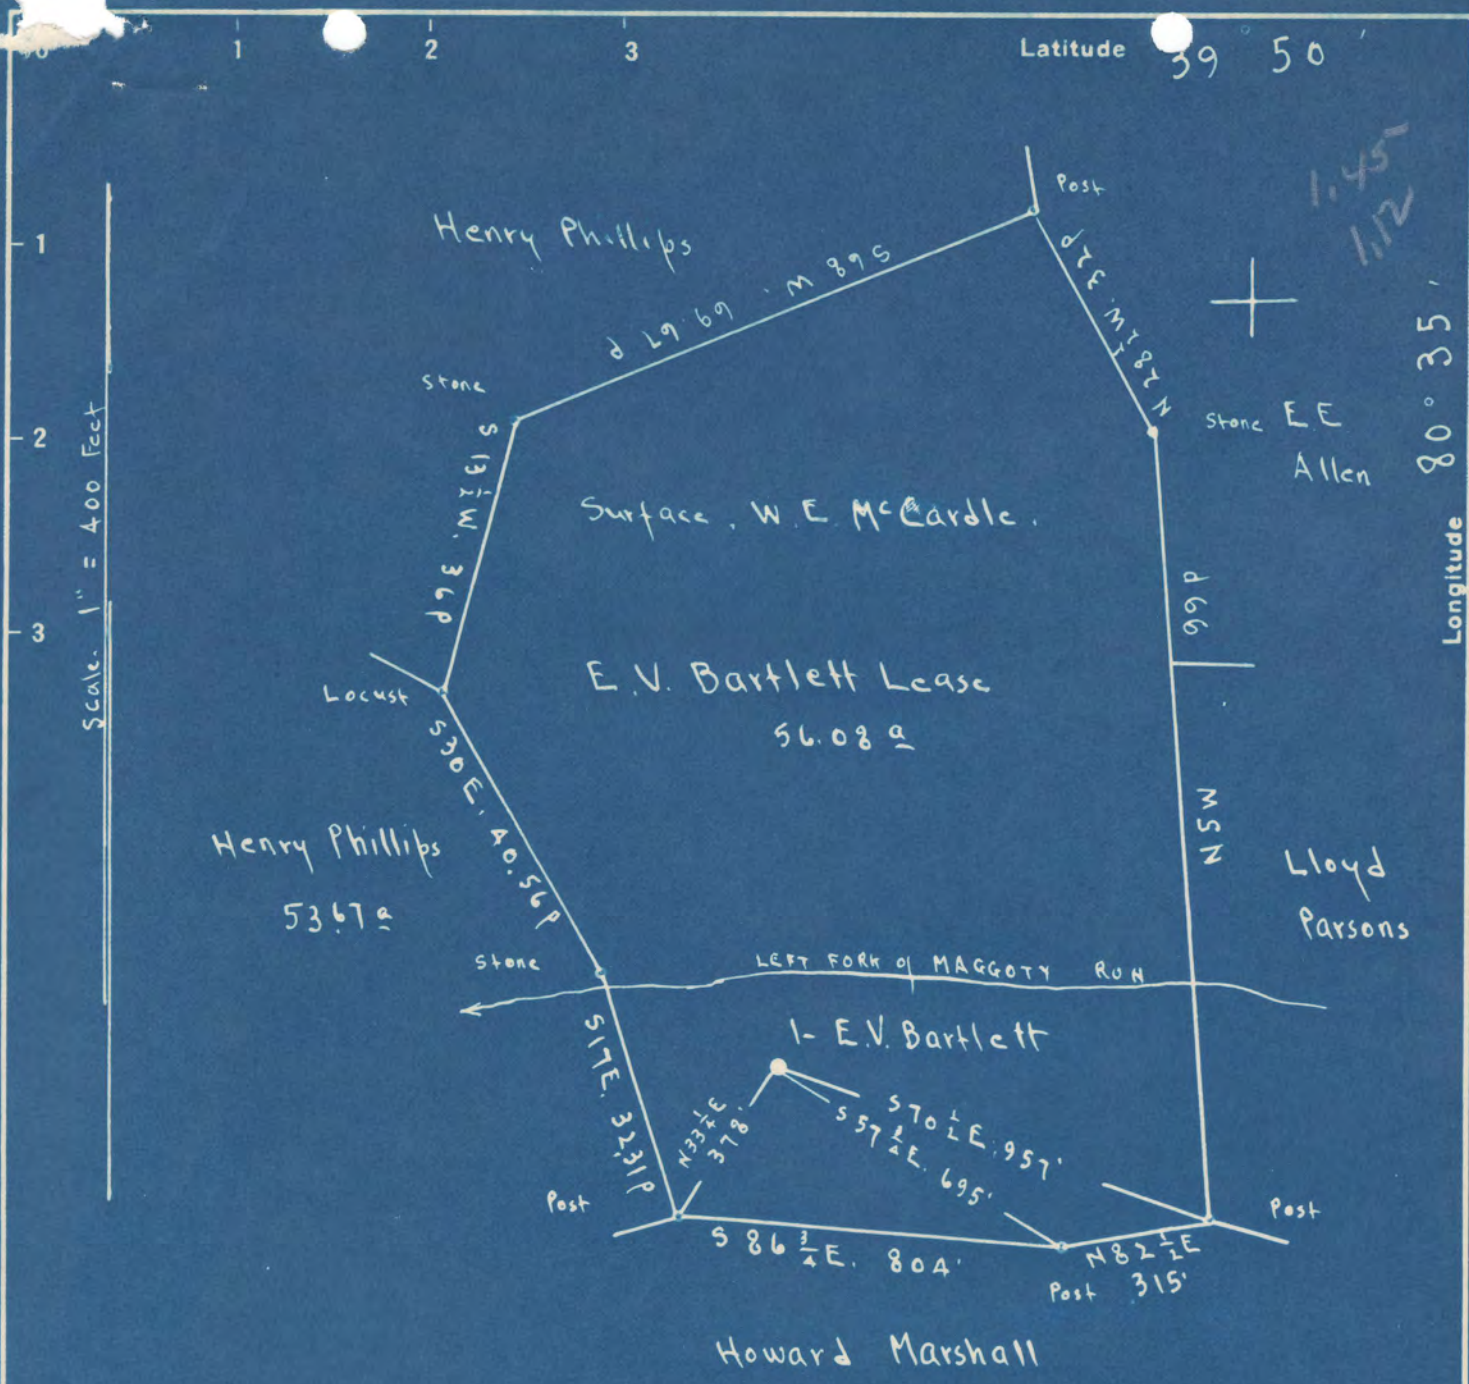 0 1 2 3 Latitude 39° 50'
1.45
1.12
1
2
3
Scale. 1" = 400 Feet
80° 35'
Longitude
Post
Henry Phillips
S68 W. 69.67 P
N 28 1/2 W. 32P
Stone
Stone E.E
Allen
S 13 1/2 W. 36P
Surface. W.E. McCardle.
99P
E.V. Bartlett Lease
56.08 a
Locust
S30E. 40.56P
N5W
Henry Phillips
53.67 a
Lloyd
Parsons
Stone
LEFT FORK of MAGGOTY RUN
1- E.V. Bartlett
S17E. 32.31P
N33 1/4 E
378'
S70 1/2 E. 957'
S57 3/4 E. 695'
Post
Post
S 86 3/4 E. 804'
N82 1/2 E
Post 315'
Howard Marshall